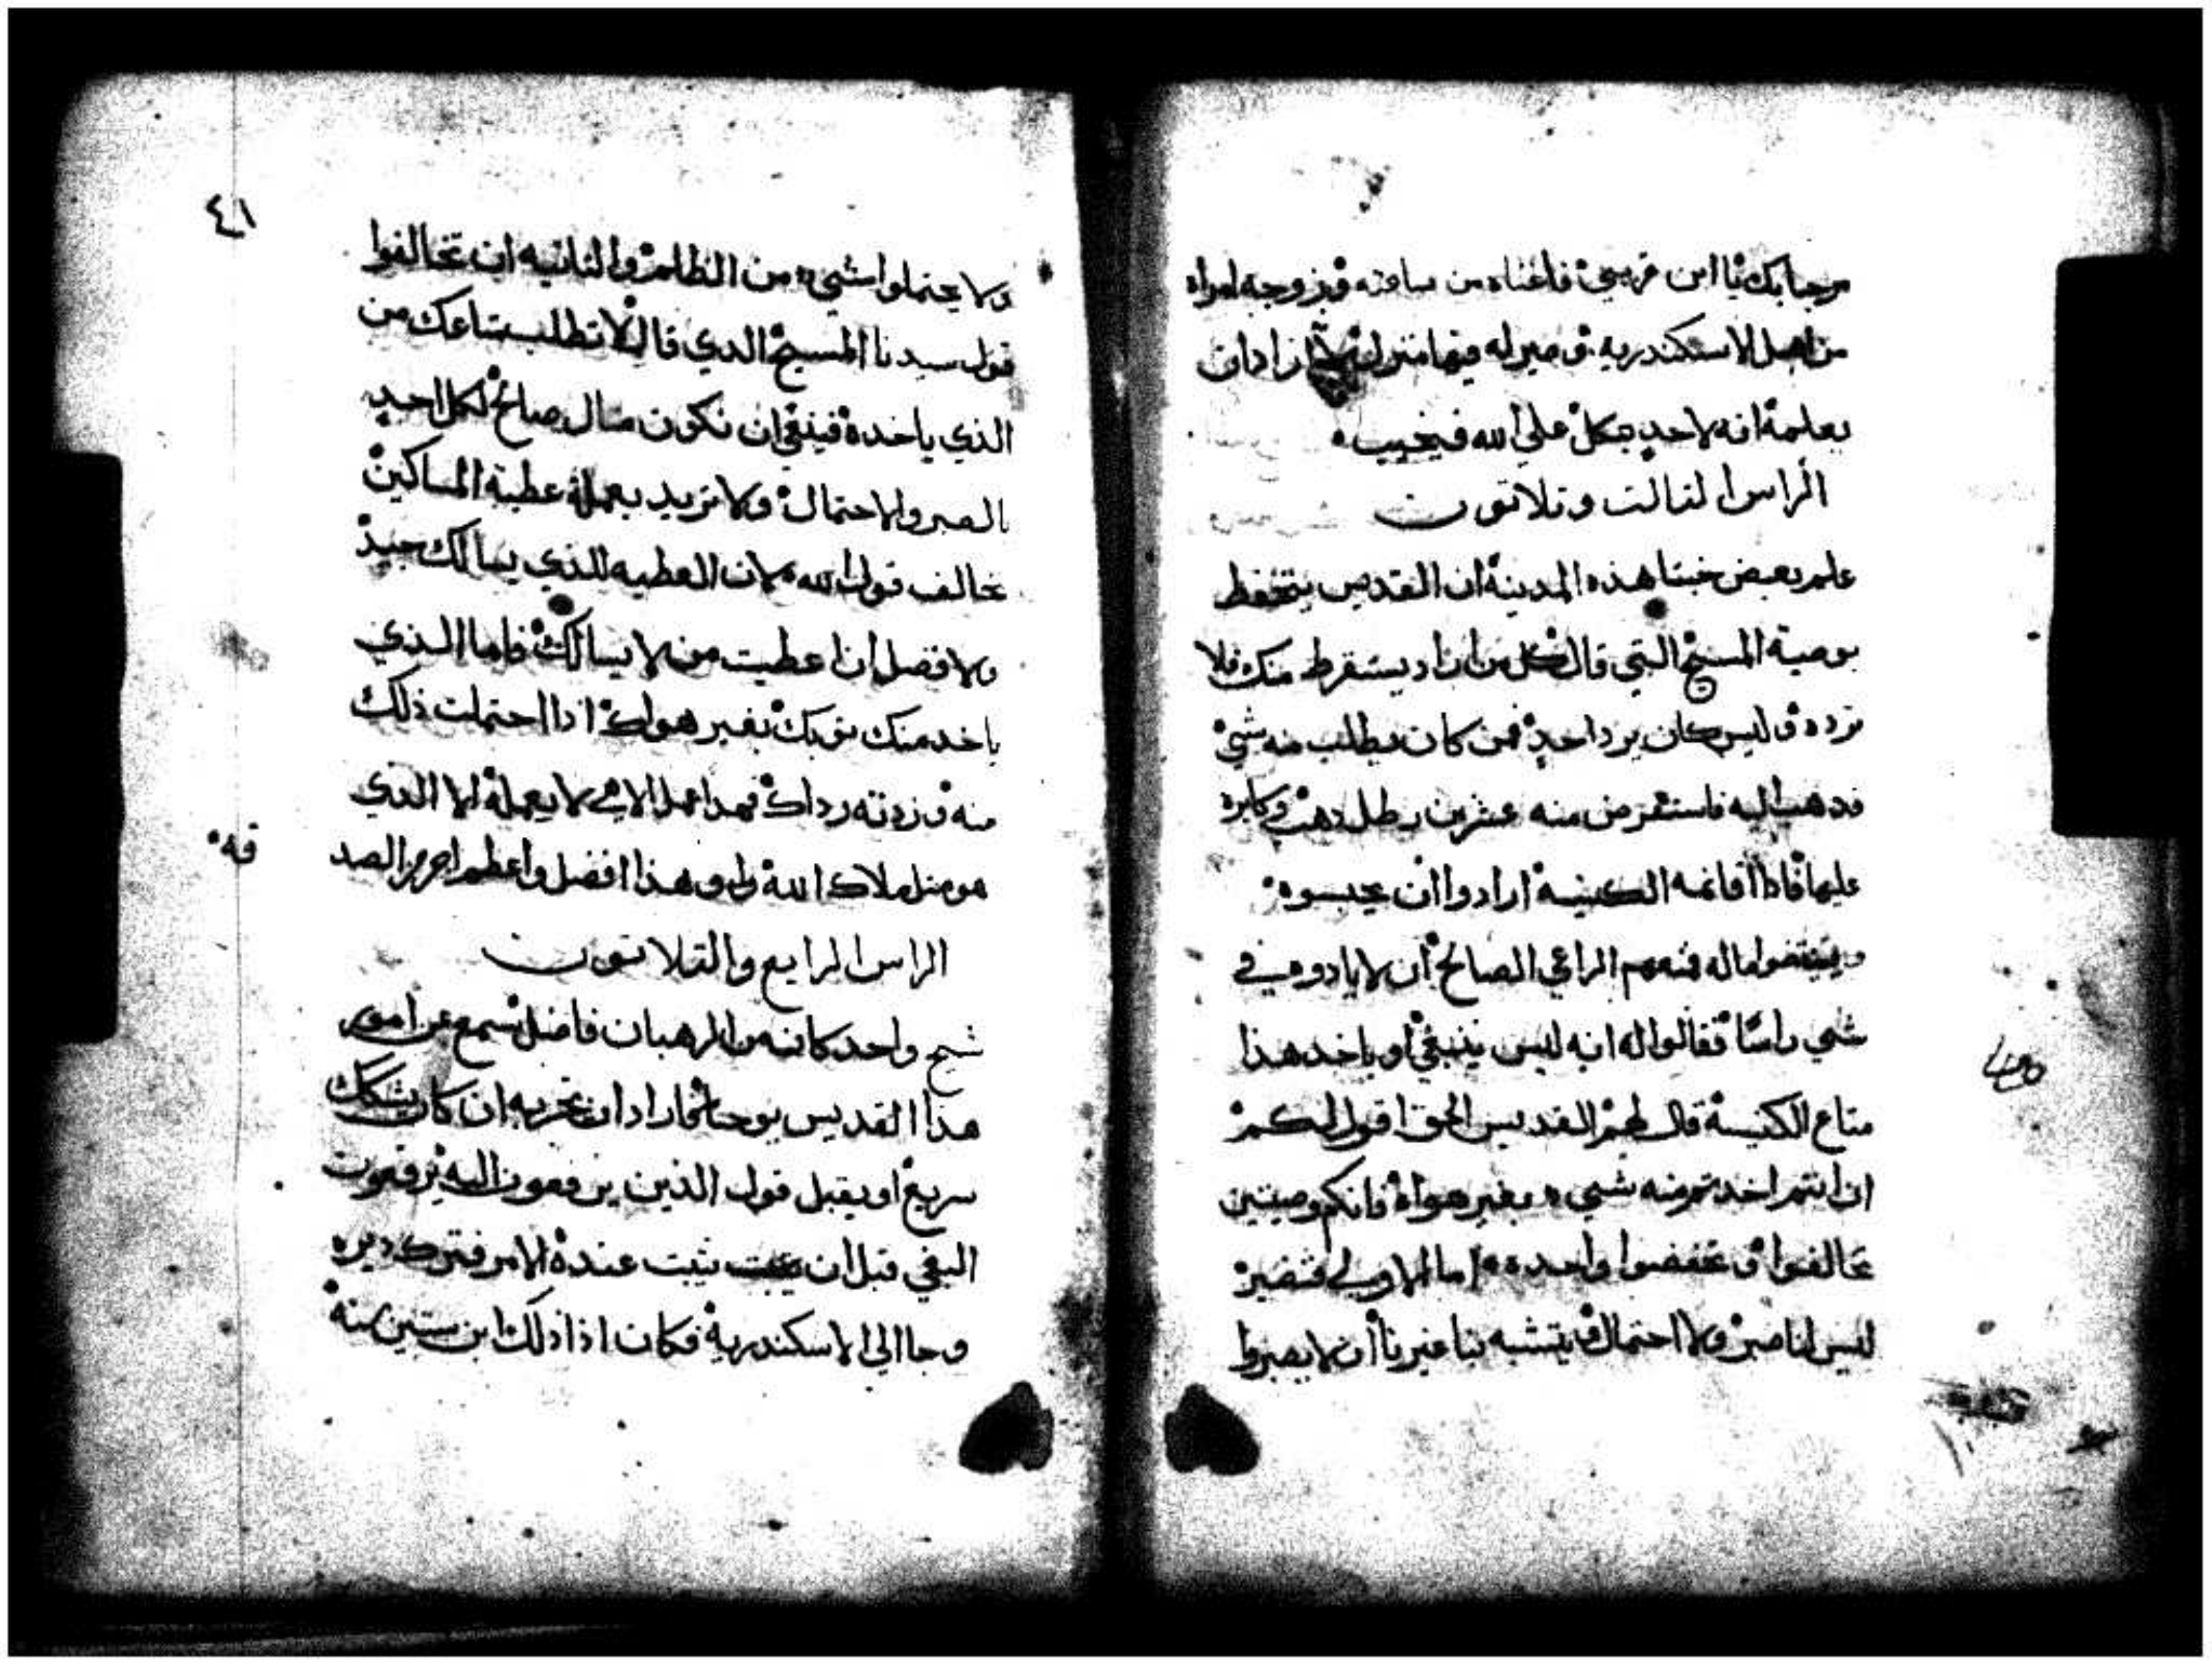 مرحبا بك يا ابن قريبي فاغناه من مسافته وزوجه امراه
من اهل الاسكندريه وصير له فيها منزل اراد ان
يعلمه انه لا احد يتكل علي الله فيخيب
الراس الثالت وتلاتون
علم بعض خبثا هذه المدينة ان القديس يتحفظ
بوصية المسيح التي قال كل من اراد يستقرض منك فلا
ترده وليس كان يرد احد فمن كان يطلب منه شي
فدهب اليه فاستقرض منه عشرين رطل دهب وكابره
عليها فاذا اقانمه الكنيسة ارادوا ان يحبسوه
ويقبضوا ماله فنهم الراعي الصالح ان لا يادوه في
شي راسًا فقالوا له انه ليس ينبغي او ياخد هذا
متاع الكنيسة قال لهم القديس الحق اقول لكم
ان انتم اخدتم منه شي بغير هواه فانكم وصيتين
تخالفوا وتحفضوا واحده اما الاولي فتصير
ليس لنا صبر ولا احتمال يتشبه بنا غيرنا ان لا يصبروا
٤١
ولا يحتملوا شي من الظلم والثانيه ان تخالفوا
قول سيدنا المسيح الدي قال لا تطلب متاعك من
الذي ياخده فينبغي ان نكون مثال صالح لكل احد
بالصبر والاحتمال ولا تريد بعمله عطية المساكين
تخالف قول الله لان العطيه للذي يسالك جيد
والافضل ان اعطيت من لا يسالك فاما الذي
ياخد منك توبك بغير هواك ادا احتملت ذلك
منه وزدته رداك فهدا عمل الاهي لا يعمله الا الذي
هو مثل ملاك الله وهو هذا افضل واعظم اجر من الصد
قه
الراس الرابع والتلاتون
شيخ واحد كان من الرهبان فاضل سمع عن امور
هذا القديس يوحنا فاراد ان يجربه ان كان يشكك
سريع او يقبل قول الذين يرفعون اليه
البغي قبل ان يثبت عنده الامر فترك ديره
وجا الي الاسكندرية فكان اذا ذلك ابن ستين سنة